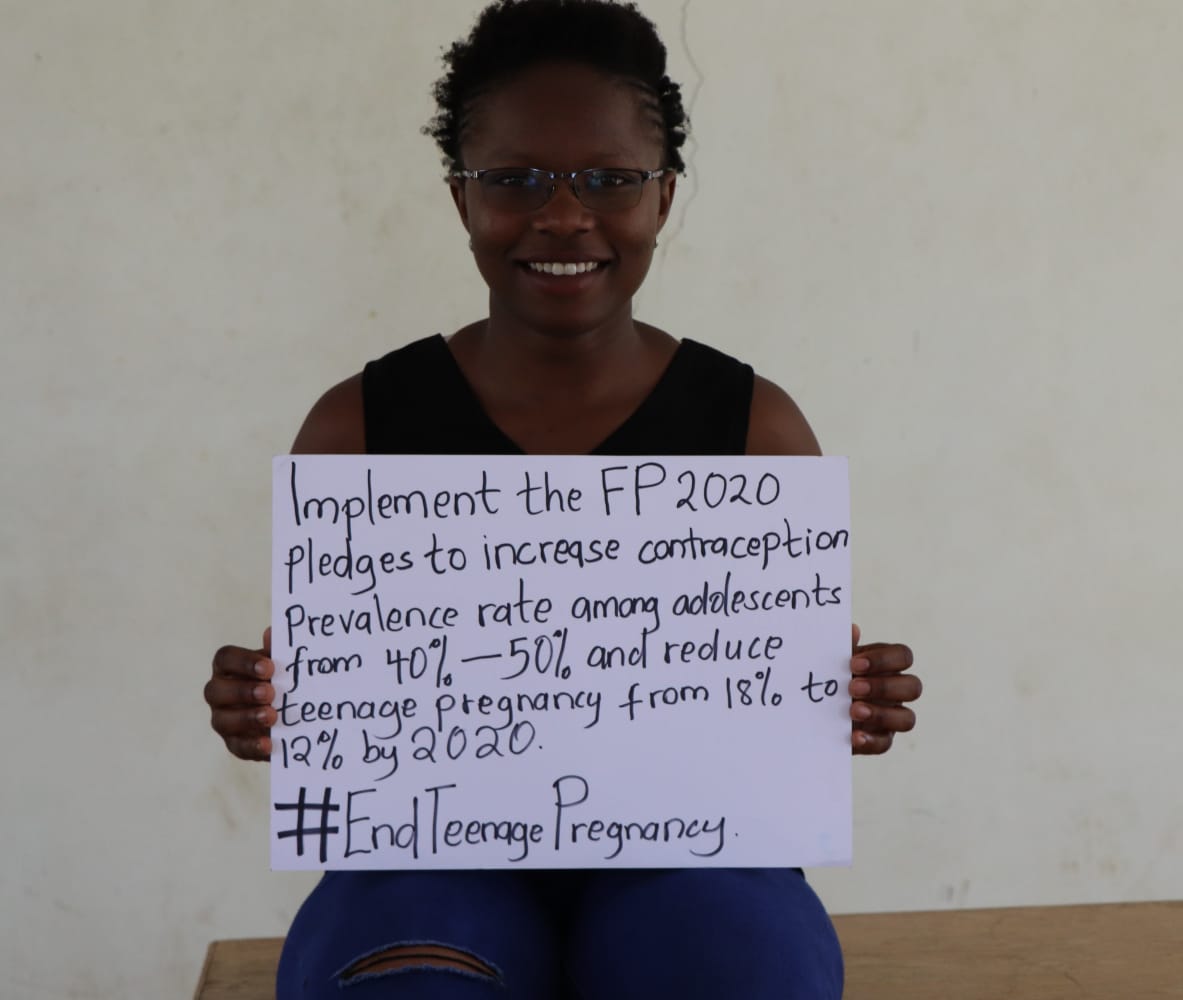 Implement the FP2020
pledges to increase contraception
prevalence rate among adolescents
from 40%-50% and reduce
teenage pregnancy from 18% to
12% by 2020.
#EndTeenagePregnancy.